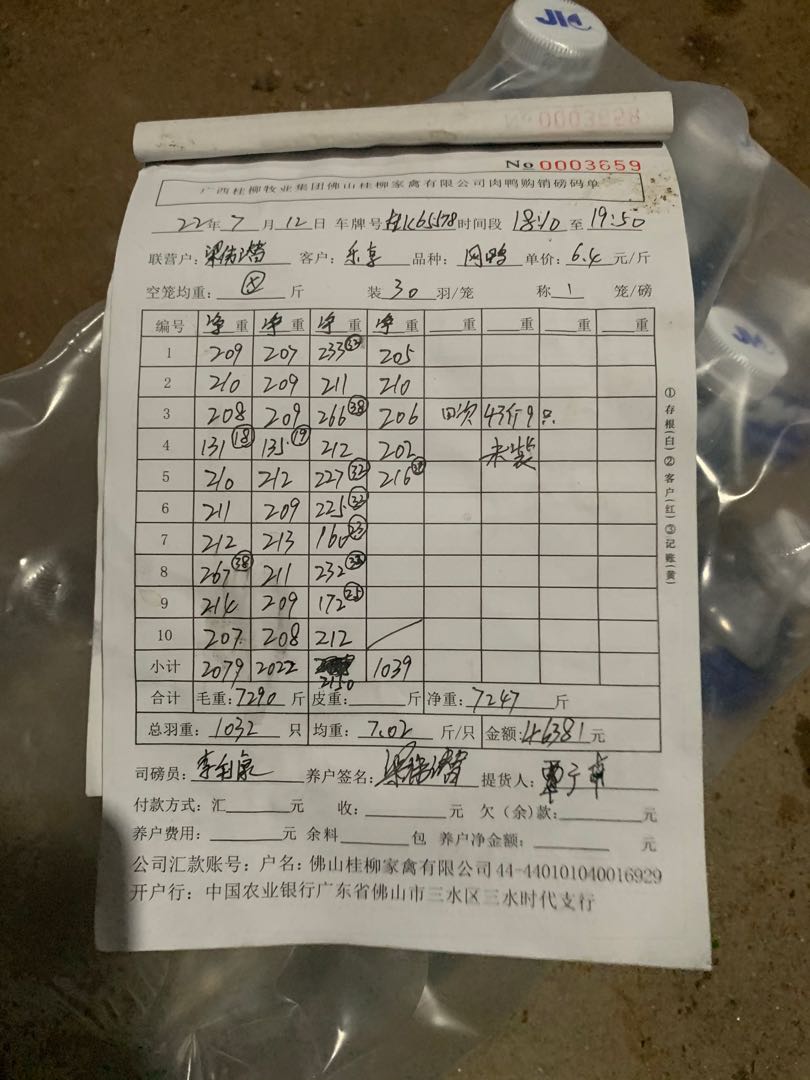 JL
No 0003658
No 0003659
广西桂柳牧业集团佛山桂柳家禽有限公司肉鸭购销磅码单
22年7月12日 车牌号桂K65578时间段 18:10至19:50
联营户: 客户: 乐享 品种: 网鸭 单价: 6.4元/斤
空笼均重: 斤 装30羽/笼 称1笼/磅
编号 净重 净重 净重 净重 重 重 重 重
1 209 207 233 32 205
2 210 209 211 210
3 208 209 266 38 206 四次 43斤9只
4 131 18 135 19 212 202 未装
5 210 212 227 32 216
6 211 209 225 32
7 212 213 160 23
8 267 38 211 232 33
9 214 209 172 25
10 207 208 212
小计 2079 2022 2150 1039
合计 毛重:7290斤 皮重: 斤 净重:7247斤
总羽重:1032只 均重:7.02斤/只 金额:46381元
司磅员: 养户签名: 提货人:
付款方式:汇 元 收: 元 欠(余)款: 元
养户费用: 元 余料 包 养户净金额: 元
公司汇款账号:户名:佛山桂柳家禽有限公司44-440101040016929
开户行:中国农业银行广东省佛山市三水区三水时代支行
①存根(白)②客户(红)③记账(黄)